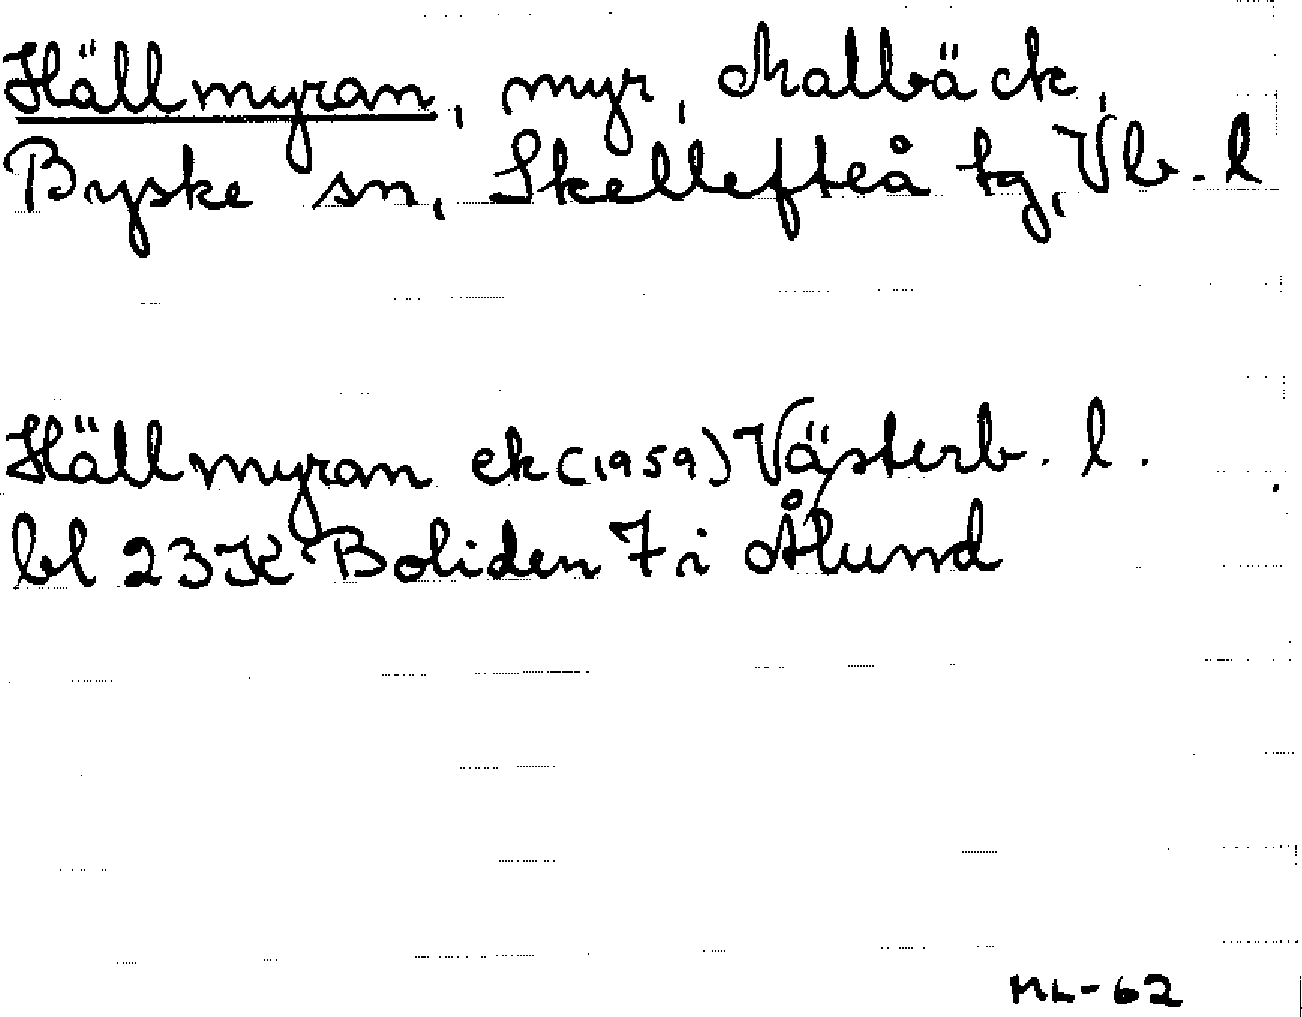 Hällmyran, myr, Malbäck,
Byske sn, Skellefteå tg, Vb. l
Hällmyran ek (1959) Västerb. l.
bl 23K Boliden 7i Ålund
ML-62